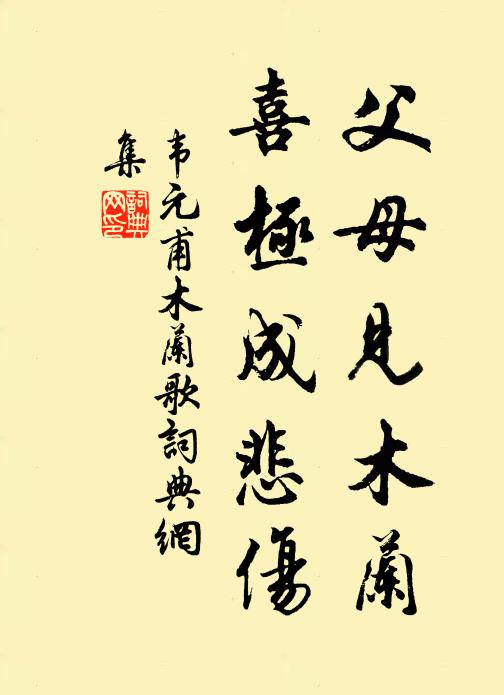 父母見木蘭
喜極成悲傷
韦元甫木蘭歌詞典網
集
詞典
网印